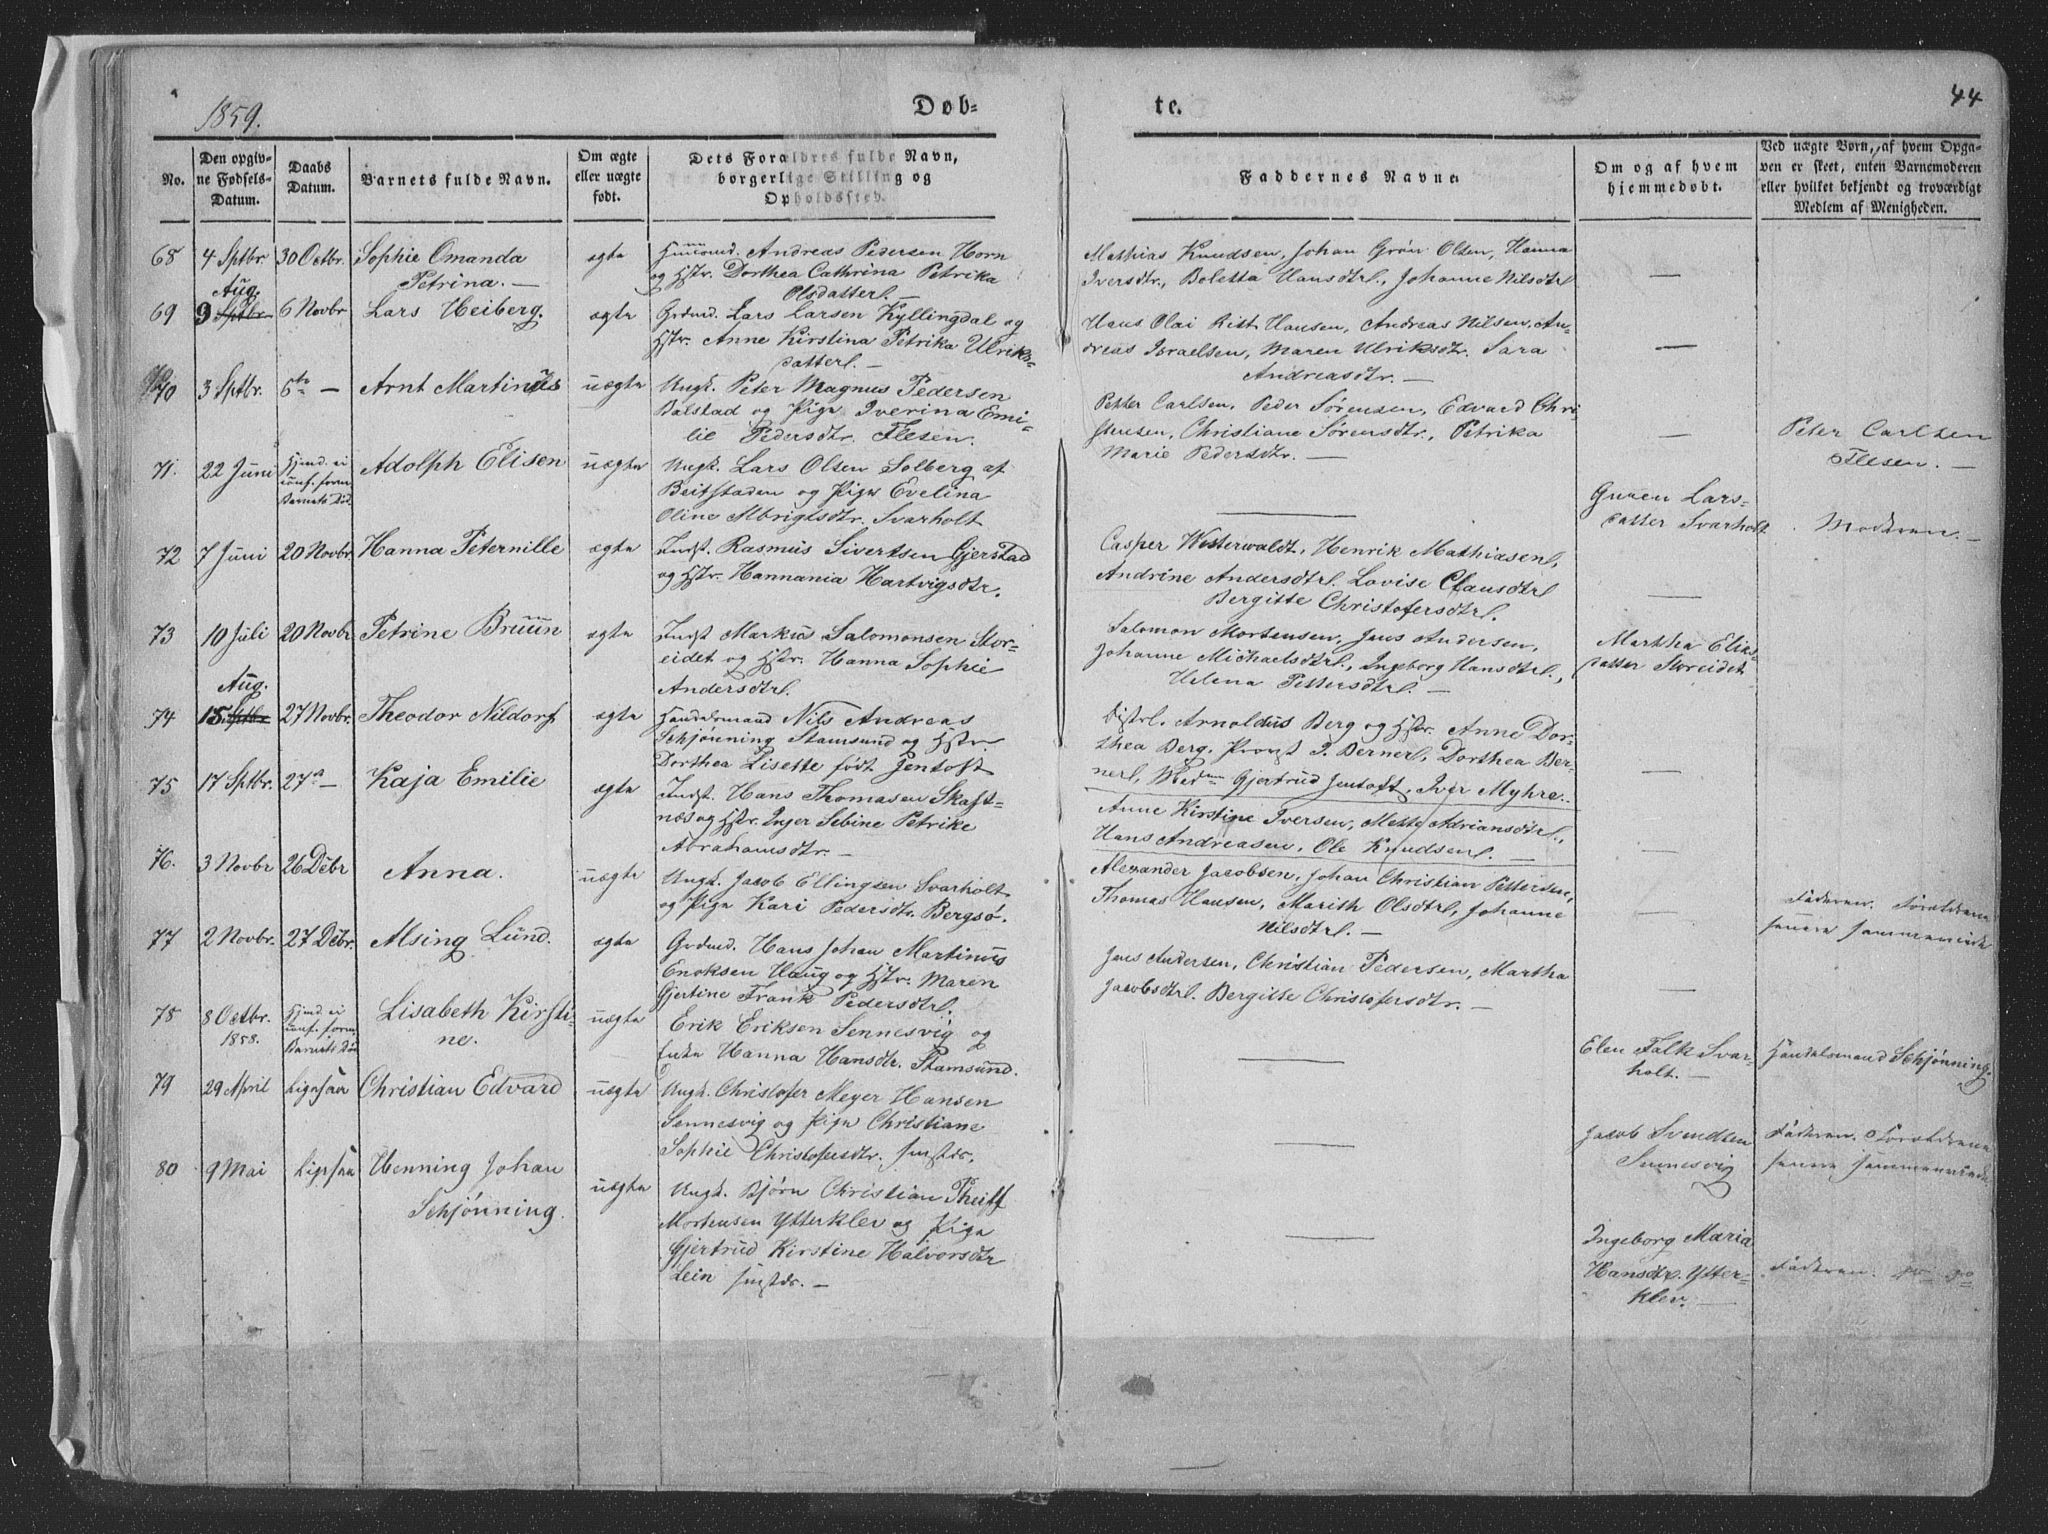 1859.
Døb-
te.
44
No.
Den opgiv-
ne Fødsels-
Datum.
Daabs
Datum.
Barnets fulde Navn.
Om ægte
eller uægte
født.
Dets Forældres fulde Navn,
borgerlige Stilling og
Opholdssted.
Faddernes Navne.
Om og af hvem
hjemmedøbt.
Ved uægte Børn, af hvem Opga-
ven er skeet, enten Barnemoderen
eller hvilket bekjendt og troværdigt
Medlem af Menigheden.
68 4 Sptbr. 30 Octbr. Sophie Omanda
Petrina. —
ægte
Huusmd. Andreas Pedersen Horn
og Hstr. Dorthea Cathrina Petrika
Olsdatter. —
Mathias Knudsen, Johan Grøn Olsen, Hanna
Iversdtr., Boletta Hansdtr., Johanne Nilsdtr.
—
Aug.
69 9 Sptbr. 6 Novbr. Lars Heiberg.
ægte
Grdmd. Lars Larsen Kyllingdal og
Hstr. Anne Kirstina Petrika Ulriks-
datter. —
Hans Olai Rist Hansen, Andreas Nilsen, An-
dreas Israelsen, Maren Ulriksdtr. Sara
Andreasdtr. —
—
70 3 Sptbr. 6te — Arnt Martinus
uægte
Ungk. Peter Magnus Pedersen
Balstad og Pige Iverina Emi-
lie Pedersdtr. Flesen.
Petter Carlsen, Peder Sørensen, Edvard Chri-
stensen, Christiane Sørensdtr., Petrika
Marie Pedersdtr. —
—
Peter Carlsen
Flesen. —
71. 22 Juni Hjmd. ei
conf. forin.
Barnets Død.
Adolph Elisen
uægte
Ungk. Lars Olsen Solberg af
Beitstaden og Pige Evelina
Oline Albrigtsdtr. Svarholt
—
Guren Lars-
datter Svarholt.
Moderen. —
72 7 Juni 20 Novbr. Hanna Peternille
ægte
Indst. Rasmus Sivertsen Gjerstad
og Hstr. Hannania Hartvigsdtr.
Casper Westerwaldt, Henrik Mathiasen,
Andrine Andersdtr. Lovise Clausdtr
Bergitte Christofersdtr.
—
73 10 Juli 20 Novbr. Petrine Bruun
ægte
Indst Markus Salomonsen Stor-
eidet og Hstr. Hanna Sophie
Andersdtr.
Salomon Mortensen, Jens Andersen,
Johanne Michaelsdtr., Ingeborg Hansdtr.,
Helena Pettersdtr. —
Martha Elias-
datter Storeidet
Aug.
74 15 Sptbr 27 Novbr. Theodor Nildorf
ægte
Handelsmand Nils Andreas
Schjønning Stamsund og Hstr.
Dorthea Lisette født Jentoft
Distrl. Arnoldus Berg og Hstr. Anne Dor-
thea Berg, Provst P. Berner, Dorthea Ber-
ner, Mad. Gjertrud Jentoft, Iver Myhre.
—
75 17 Sptbr. 27de — Kaja Emilie
ægte
Indst. Hans Thomasen Skaft-
næs og Hstr. Inger Sebine Petrike
Abrahamsdtr. —
Anne Kirstine Iversen, Mette Adriansdtr.,
Hans Andreasen, Ole Knudsen. —
—
76. 3 Novbr 26 Debr Anna.
uægte
Ungk. Jacob Ellingsen Svarholt
og Pige Kari Pedersdtr. Bergsø.
Alexander Jacobsen, Johan Christian Pettersen,
Thomas Hansen, Marith Olsdtr., Johanne
Nilsdtr. —
—
Faderen. Forældrene
senere sammenviede
77 2 Novbr. 27 Debr. Alsing Lund.
ægte
Grdmd. Hans Johan Martinus
Enoksen Haug og Hstr. Maren
Gjertine Frank Pedersdtr.
Jens Andersen, Christian Pedersen, Martha
Jacobsdtr. Bergitte Christofersdtr. —
—
78 8 Octbr.
1858.
Hjmd. ei
conf. forin.
Barnets Død
Lisabeth Kirsti-
ne.
uægte
Erik Eriksen Sennesvig og
Enke Hanna Hansdtr. Stamsund.
—
Elen Falk Svar-
holt. —
Handelsmand Schjønning.
79 29 April Ligesaa Christian Edvard
uægte
Ungk. Christofer Meyer Hansen
Sennesvig og Pige Christiane
Sophie Christofersdtr. smstds.
—
Jacob Svendsen
Sennesvig
Faderen. Forældrene
senere sammenviede
80 9 Mai Ligesaa Henning Johan
Schjønning.
uægte
Ungk. Bjørn Christian Theiff
Mortensen Ytterklev og Pige
Gjertrud Kirstine Halvorsdtr
Lein smstds. —
—
Ingeborg Maria
Hansdtr. Ytter-
klev. —
Faderen.